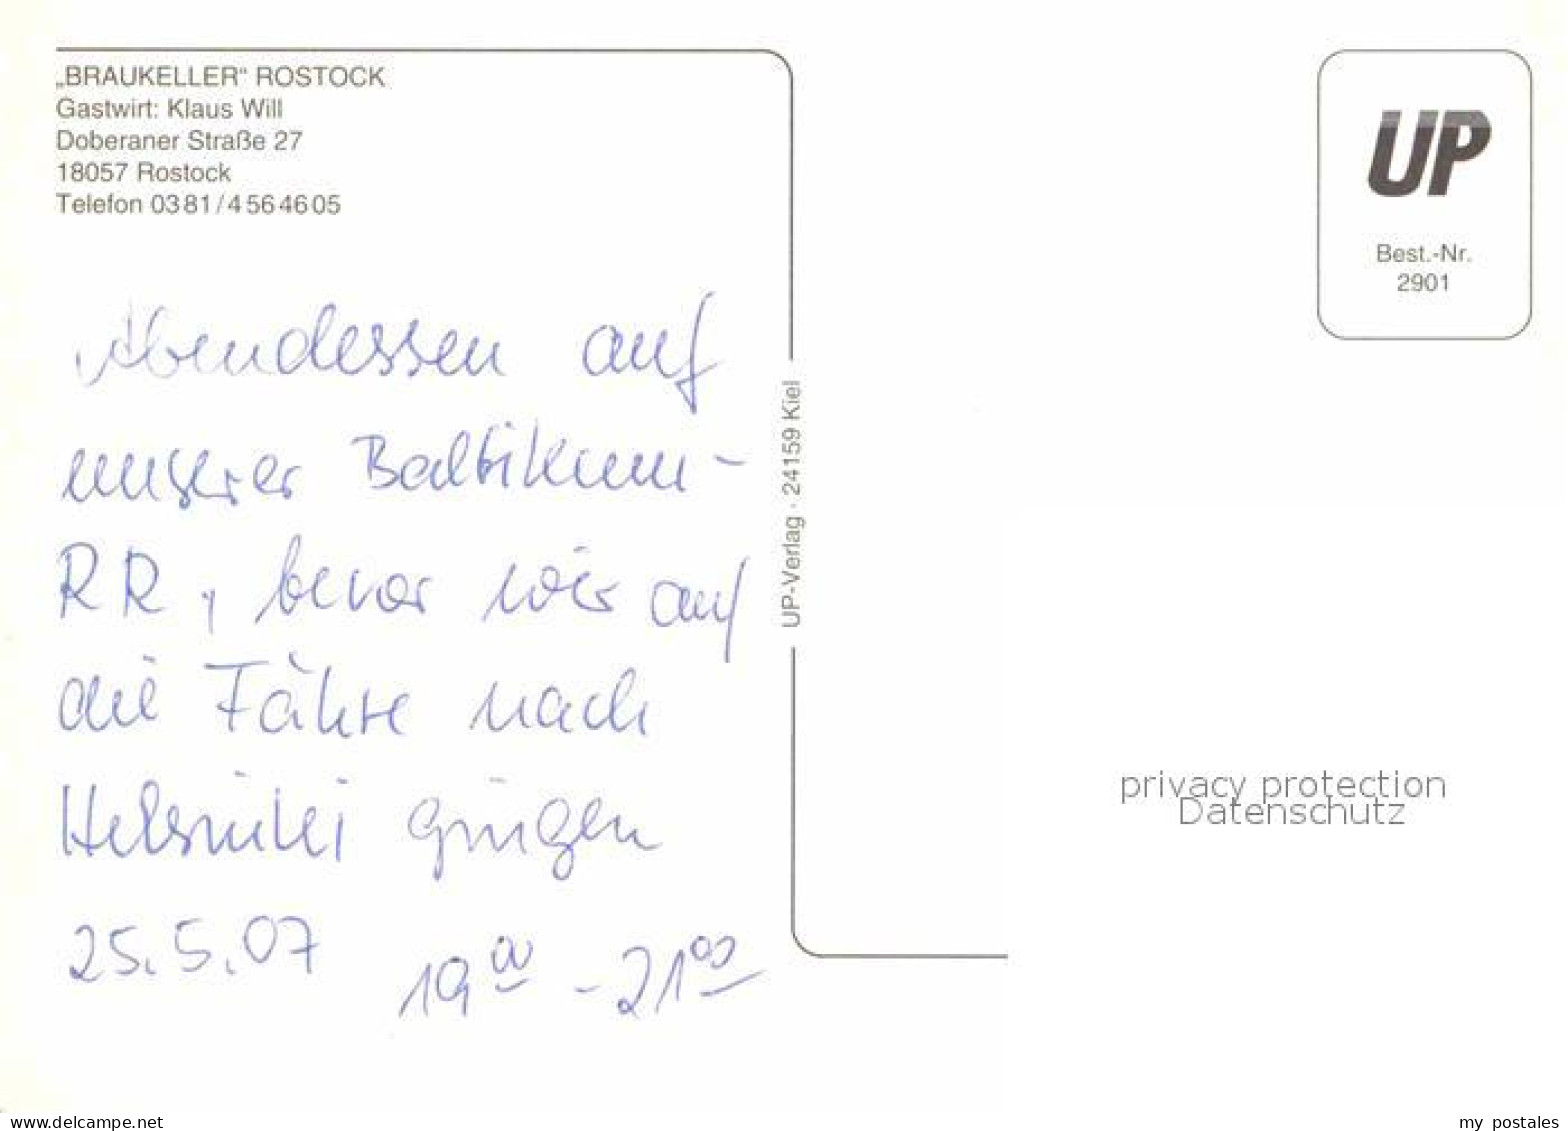 „BRAUKELLER“ ROSTOCK
Gastwirt: Klaus Will
Doberaner Straße 27
18057 Rostock
Telefon 0381/4564605
UP
Best.-Nr.
2901
Abendessen auf
unserer Baltikum-
RR, bevor wir auf
die Fähre nach
Helsinki gingen
25.5.07 19⁰⁰ - 21⁰⁰
UP-Verlag · 24159 Kiel
privacy protection
Datenschutz
www.delcampe.net
my_postales